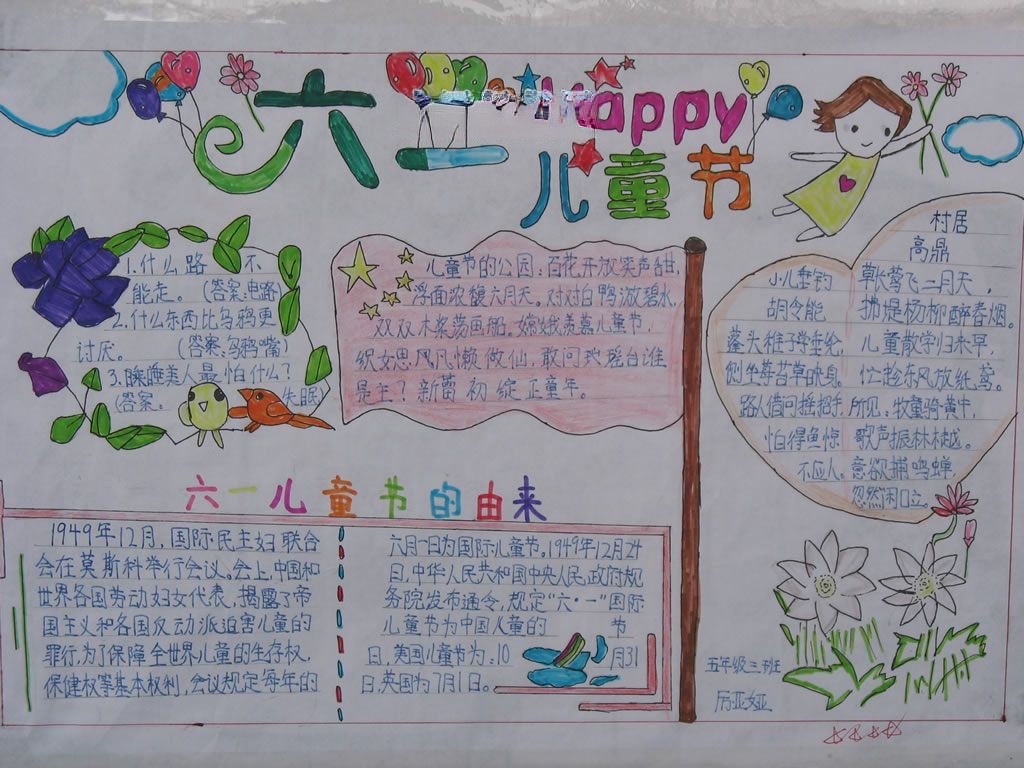 六一 Happy
儿童节
1.什么路 不
能走。(答案:电路)
2.什么东西比乌鸦更
讨厌。 (答案:乌鸦嘴)
3.睡美人最怕什么?
(答案. 失眠)
儿童节的公园:百花开放笑声甜,
浮面浓馥六月天。对对白鸭游碧水,
双双木桨荡画船。嫦娥羡慕儿童节,
织女思凡懒做仙。敢问瑶台谁
是主?新蕾初绽正童年。
村居
高鼎
草长莺飞二月天,
拂堤杨柳醉春烟。
儿童散学归来早,
忙趁东风放纸鸢。
小儿垂钓
胡令能
蓬头稚子学垂纶,
侧坐莓苔草映身。
路人借问摇招手,
怕得鱼惊
不应人。
所见:牧童骑黄牛,
歌声振林樾。
意欲捕鸣蝉,
忽然闭口立。
六一儿童节的由来
1949年12月,国际民主妇联合
会在莫斯科举行会议。会上,中国和
世界各国劳动妇女代表,揭露了帝
国主义和各国反动派迫害儿童的
罪行,为了保障全世界儿童的生存权,
保健权等基本权利,会议规定每年的
六月一日为国际儿童节。1949年12月24
日,中华人民共和国中央人民政府规
务院发布通令,规定“六·一”国际
儿童节为中国儿童的 节
日,美国儿童节为:10 月31
日,英国为7月1日。
五年级三班
厉亚娅